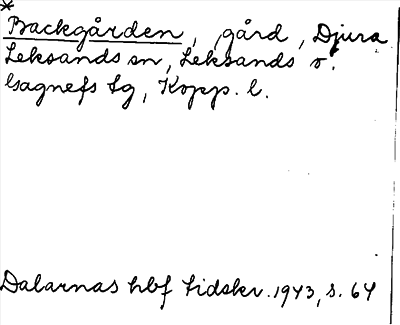 *
Backgården, gård, Djura
Leksands sn, Leksands o.
Gagnefs tg, Kopp. l.
Dalarnas hbf tidskr. 1943, s. 64